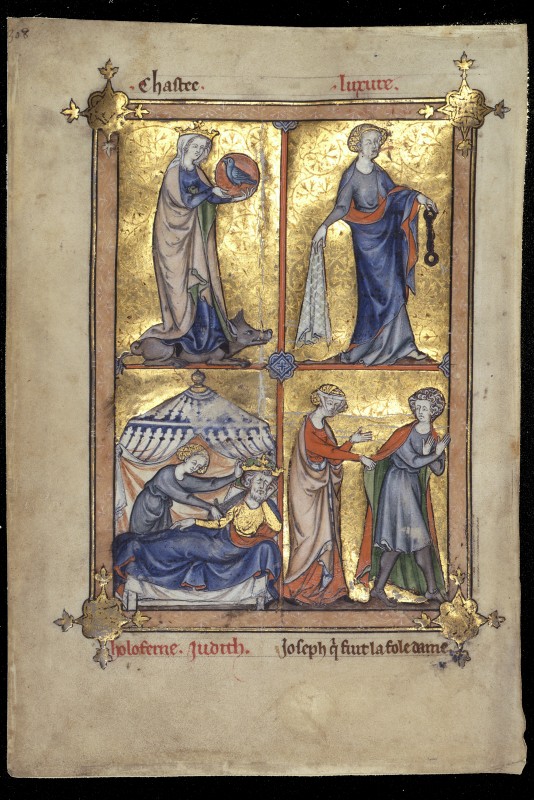 · Chastee ·
· luxure ·
holoferne · Judith ·
Joseph q̃ fiut la fole dame